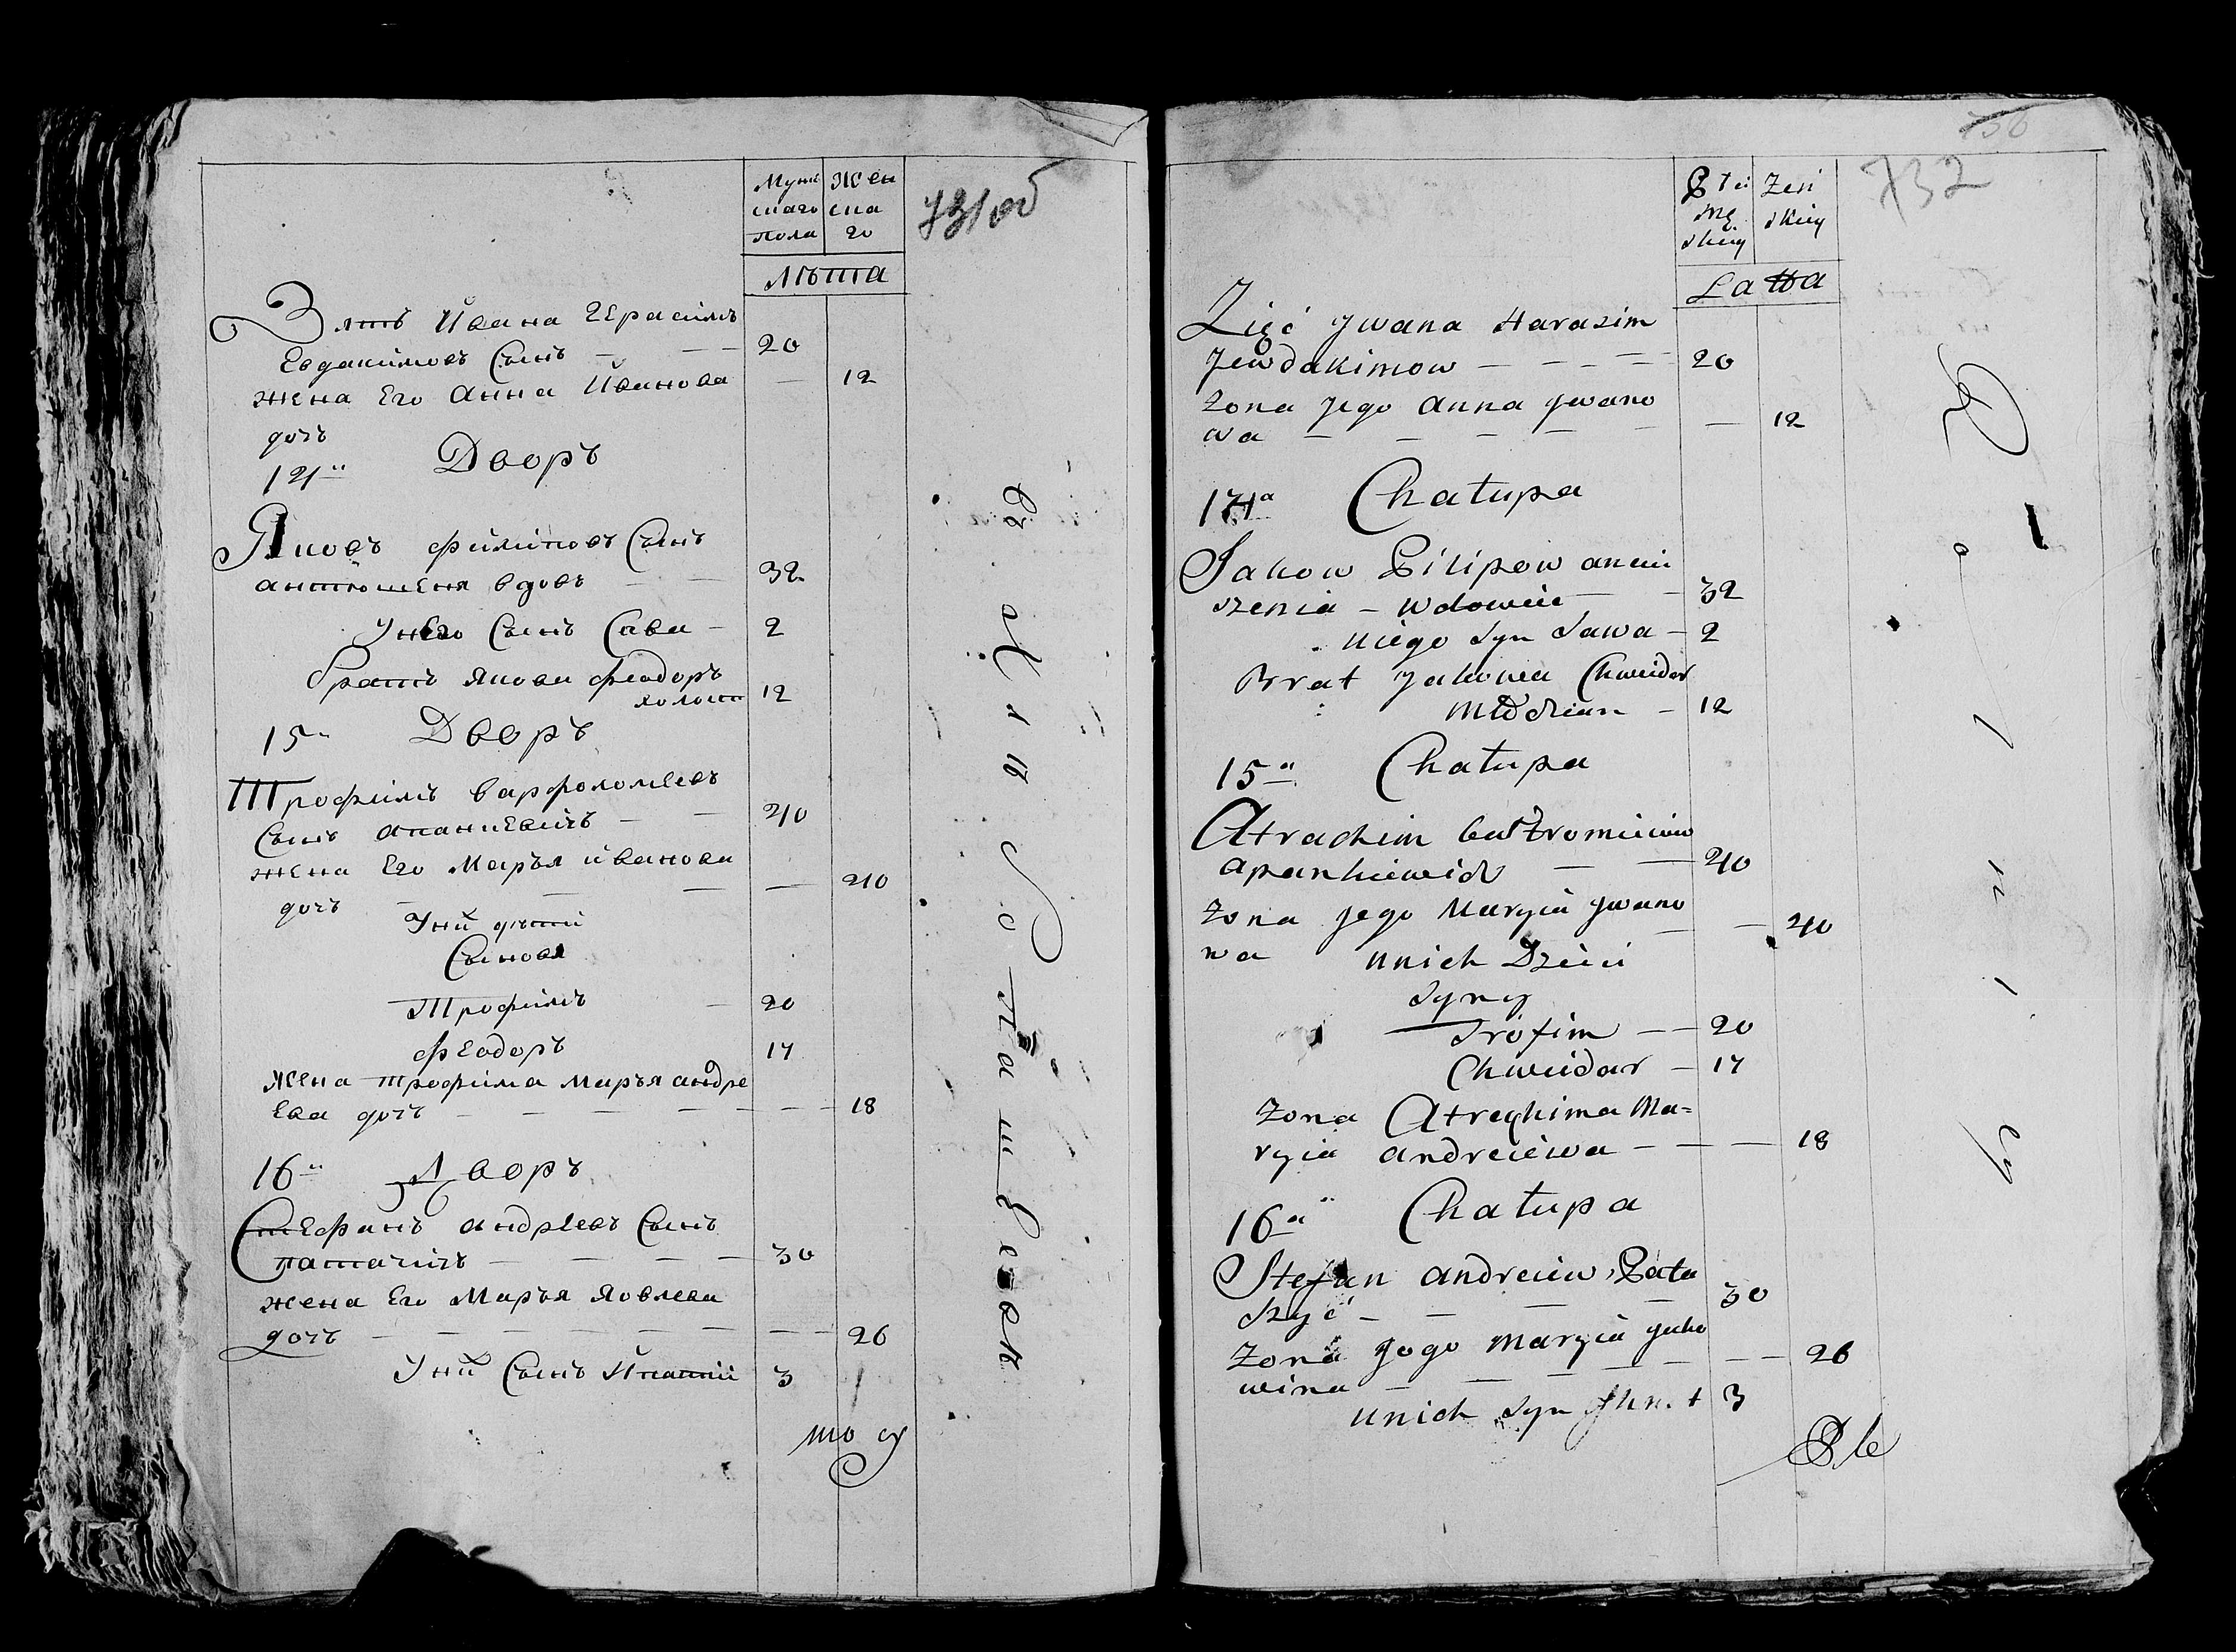 Мужескаго пола
Женскаго
Лѣта
731 об
Зять Ивана Герасимъ
Евдакимовъ Сынъ — — — 20
жена Его Анна Иванова — 12
дочь
14й Дворъ
Яковъ филиповъ Сынъ
антюшеня вдовъ — — 32
Унего Сынъ Сава — 2
братъ Якова феодоръ
холост 12
15й Дворъ
Трофимъ варфоломеевъ
Сынъ апанкевичъ — — 40
жена Его Марья иванова
дочь — — — — 40
Уних дѣти
Сыновя
Трофимъ — 20
феодоръ 17
Жена трофима Марья андре
Ева дочь — — — — — — 18
16й Дворъ
Стефанъ андреевъ Сынъ
паташичъ — — — — 30
жена Его Марья Яковлева
дочь — — — — — — — — 26
Уних Сынъ Игнатий 3
732
Płci męskiey
Żeńskiey
Latta
Zięć Jwana Harasim
Jewdakimow — — — — 20
żona Jego Anna Jwano
wa — — — — — — 12
14a Chałupa
Jakow Pilipow anciu
szenia — wdowiec — — 32
u niego Syn Sawa — 2
Brat Jakowa Chwiedor
Młodzian — 12
15a Chałupa
Atrachim
apankiewicz — — 40
żona Jego Maryia Jwano
wa — — 40
unich Dzieci
Syny
Trofim — — 20
Chwiedor — 17
żona Atrachima Ma=
ryia andreiewa — — — 18
16a Chałupa
Stefan andreiew Pata
szyć — — — — 30
żona Jego Maryia Jako
wina — — — — — — 26
unich Syn 3